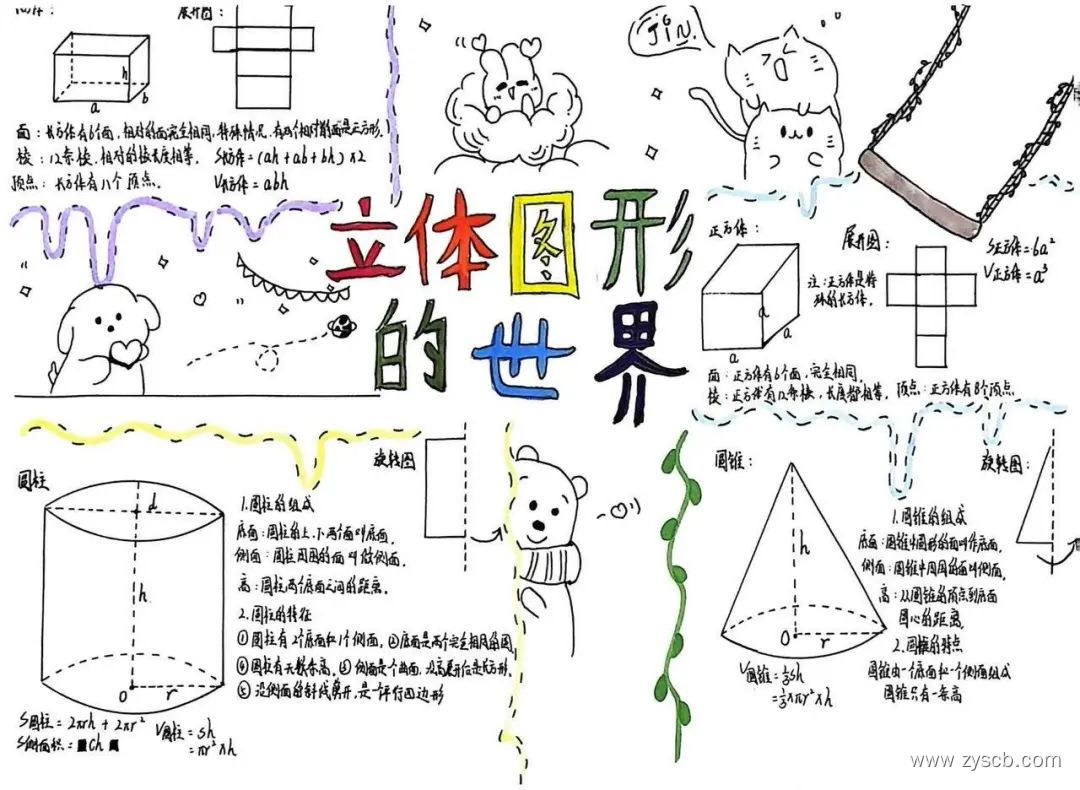 展开图:
h
a
b
面:长方体有6个面,相对的面完全相同,特殊情况,有两个相对的面是正方形.
棱:12条棱,相对的棱长度相等.
S长方体=(ah+ab+bh)×2
顶点:长方体有八个顶点.
V长方体=abh
Jin.
立体图形
的世界
正方体:
展开图:
S正方体=6a²
V正方体=a³
注:正方体是特
殊的长方体.
a
a
a
面:正方体有6个面,完全相同.
棱:正方体有12条棱,长度都相等.
顶点:正方体有8个顶点.
圆柱
旋转图
d
h
o
r
1.圆柱的组成
底面:圆柱的上、下两个面叫底面.
侧面:圆柱周围的面叫做侧面.
高:圆柱两个底面之间的距离.
2.圆柱的特征
①圆柱有2个底面和1个侧面,②底面是两个完全相同的圆
④圆柱有无数条高,③侧面是个曲面,沿高展开后是长方形.
⑤沿侧面的斜线展开,是一个平行四边形
S圆柱=2πrh+2πr²
S侧面积=ch
V圆柱=sh
=πr²×h
圆锥:
旋转图:
h
O
r
1.圆锥的组成
底面:圆锥中圆形的面叫作底面.
侧面:圆锥中周围的面叫侧面.
高:从圆锥的顶点到底面
圆心的距离.
2.圆锥的特点
圆锥由一个底面和一个侧面组成
圆锥只有一条高
V圆锥=⅓sh
=⅓×πr²×h
www.zyscb.com